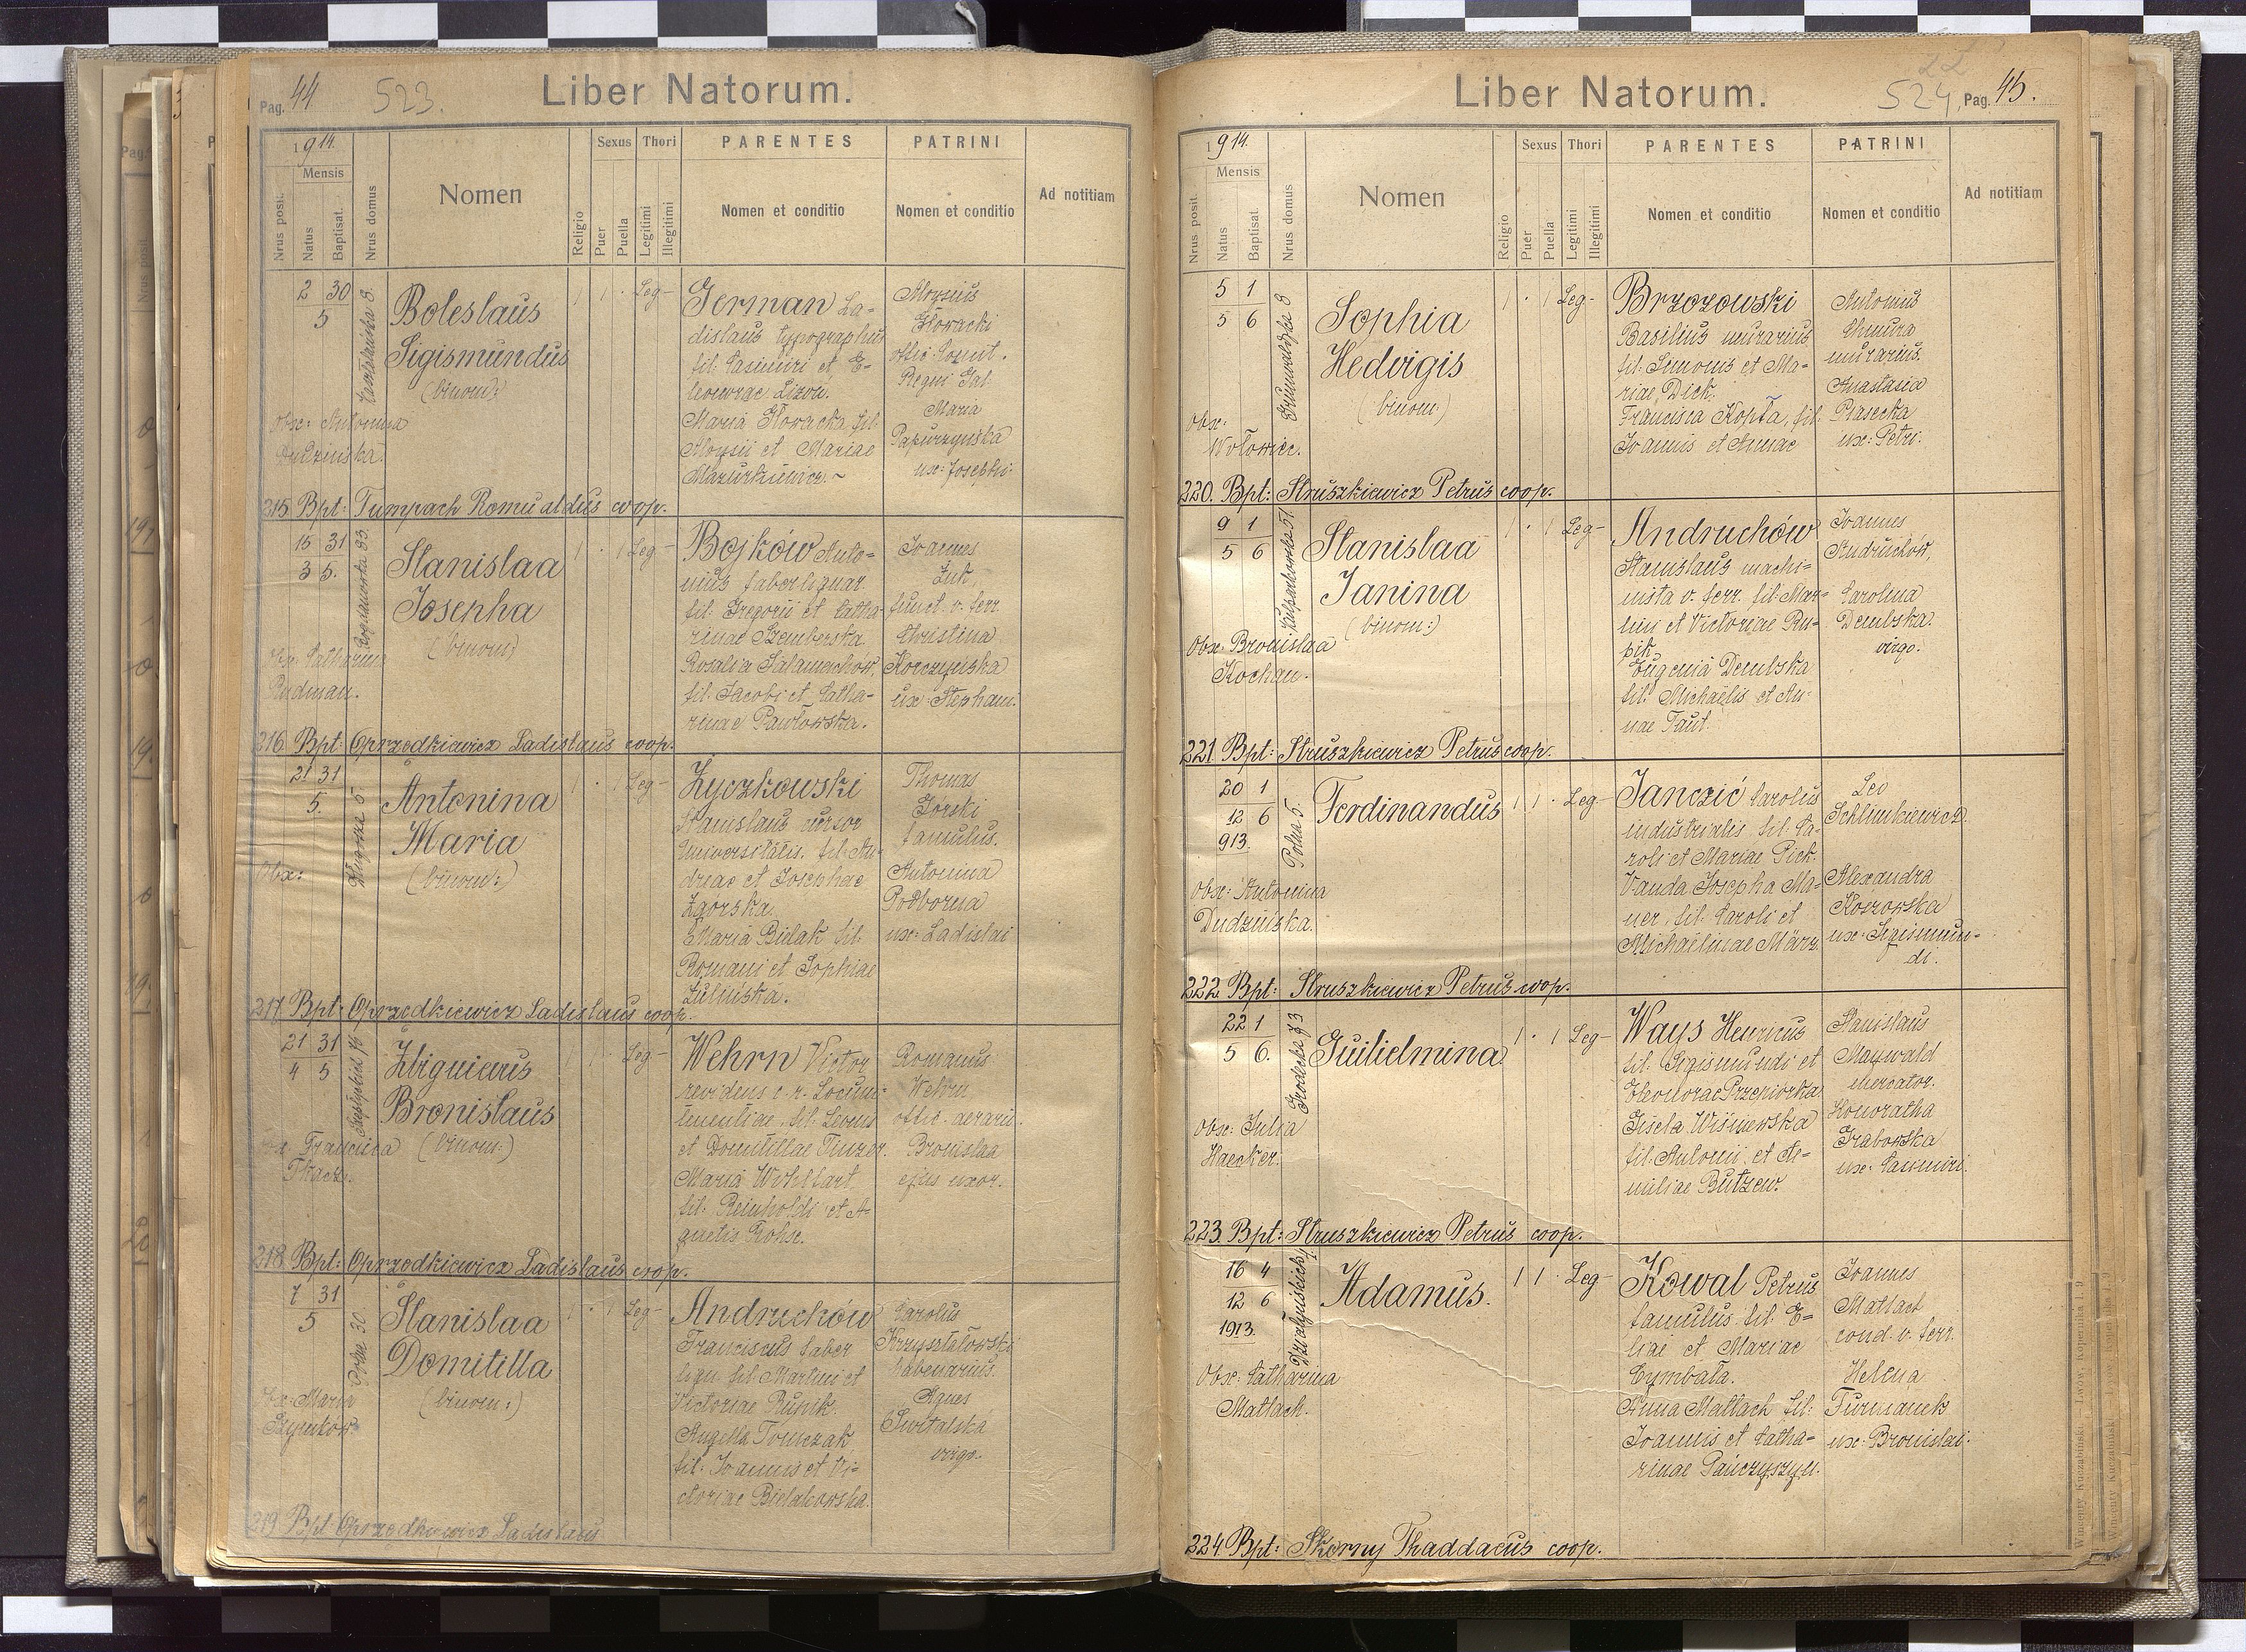 Pag. 44
523.
Liber Natorum.
1914.
Mensis
Nrus posit.
Natus
Baptisat.
Nrus domus
Nomen
Religio
Sexus
Puer
Puella
Thori
Legitimi
Illegitimi
PARENTES
Nomen et conditio
PATRINI
Nomen et conditio
Ad notitiam
2 30
5
Boleslaus
Sigismundus
(binom:)
Obx: Antonina
Dudzińska.
1 1 · Leg-
German La-
dislaus typographus
fil. Casimiri et E-
leonorae Lizoń.
Maria Głowacka fil.
Aloysii et Mariae
Mazurkiewicz.~
Aloysius
Głowacki
offic. Comit.
Regni Gal.
Maria
ux: Josephi.
215. Bpt: Tumpach Romualdus coop.
15 31
3 5.
Bogdanowska 33
Stanislaa
Josepha
(binom)
Obx: Catharina
Rudman.
1 · 1 Leg-
Bojków Anto-
nius faber lignar.
fil. Gregorii et Catha-
rinae Szemberska
Rosalia Salamachow,
fil. Jacobi et Catha-
rinae Pawłowska.
Joannes
Żuk,
funct. v. ferr.
Christina
Korczyńska
ux: Stephani.
216. Bpt: Oprzędkiewicz Ladislaus coop.
21 31
5.
Antonina
Maria
(binom:)
Obx:
1 · 1 Leg-
Życzkowski
Stanislaus cursor
Universitatis, fil. An-
dreae et Josephae
Zgorska
Maria Bielak fil.
Romani et Sophiae
Żulińska.
Thomas
Gorski
famulus.
Antonina
Podborna
ux: Ladislai
217. Bpt: Oprzędkiewicz Ladislaus coop.
21 31
4 5
Zbignieus
Bronislaus
(binom:)
Obx Francisca
Tkacz.
1 1 · Leg-
Wehrn Victor
revidens c. r. Locum-
tenentiae, fil. Leonis
et Domitillae Tinzer.
Maria Wohlfart
fil. Reinholdi et A-
gnetis Rohse.
Romanus
Wehrn
offic. aerarii.
Bronislaa
ejus uxor.
218. Bpt: Oprzędkiewicz Ladislaus coop.
7 31
5
Stanislaa
Domitilla
(binom:)
Obx: Maria
1 · 1 Leg-
Andruchów
Franciscus faber
lign. fil. Martini et
Victoriae Rupik.
Angella Tomczak
fil. Joannis et Vi-
ctoriae Bielakowska.
Carolus
Krzyształowski
Agnes
Świtalska
virgo.
219 Bpt: Oprzędkiewicz Ladislaus
Liber Natorum.
22
524.
Pag. 45.
1914.
Mensis
Nrus posit.
Natus
Baptisat.
Nrus domus
Nomen
Religio
Sexus
Puer
Puella
Thori
Legitimi
Illegitimi
PARENTES
Nomen et conditio
PATRINI
Nomen et conditio
Ad notitiam
5 1
5 6
Grünwaldzka 8
Sophia
Hedvigis
(binom:)
Obx:
Wołowiec.
1 · 1 Leg-
Brzozowski
Basilius murarius
fil. Simonis et Ma-
riae Dick.
Francisca Kopta, fil.
Joannis et Annae
Antonius
Chmura
murarius.
Anastasia
Piasecka
ux: Petri.
220. Bpt: Struszkiewicz Petrus coop.
9 1
5 6
Kulparkowska 51.
Stanislaa
Janina
(binom:)
Obx: Bronislaa
Kochan.
1 · 1 Leg-
Andruchów
Stanislaus machi-
nista v. ferr. fil. Mar-
tini et Victoriae Ru-
pik
Eugenia Dembska
fil. Michaëlis et An-
nae Taut.
Joannes
Andruchow,
Carolina
Dembska.
virgo.
221. Bpt: Struszkiewicz Petrus coop.
20 1
12 6
913.
Polna 5.
Ferdinandus
Obx: Antonina
Dudzińska.
1 1 · Leg-
Janczić Carolus
industrialis fil. Ca-
roli et Mariae Pick.
Vanda Josepha Ma-
uer, fil. Caroli et
Michaëlinae März.
Leo
Schlimkiewicz.
Alexandra
Koszowska
ux: Sigismun-
di.
222. Bpt: Struszkiewicz Petrus coop.
22 1
5 6.
Grodecka 73
Guilielmina
Obx: Julia
Haecker.
1 · 1 Leg-
Ways Henricus
fil. Sigismundi et
Eleonorae Przepiorka
Gisela Wiśniewska
fil. Antonii et Ae-
miliae Butzew.
Stanislaus
Maywald
mercator.
Honoratha
Grabowska
ux: Casimiri.
223. Bpt: Struszkiewicz Petrus coop.
16 4
12 6
1913.
Adamus.
Obx: Catharina
Matlach.
1 1 · Leg-
Kowal Petrus
famulus fil. E-
liae et Mariae
Cymbała.
Anna Matlach fil.
Joannis et Catha-
rinae Pańczyszyn.
Joannes
Matlach
cond. v. ferr.
Helena
Furmanek
ux: Bronislai.
224. Bpt: Skorny Thaddaeus coop.